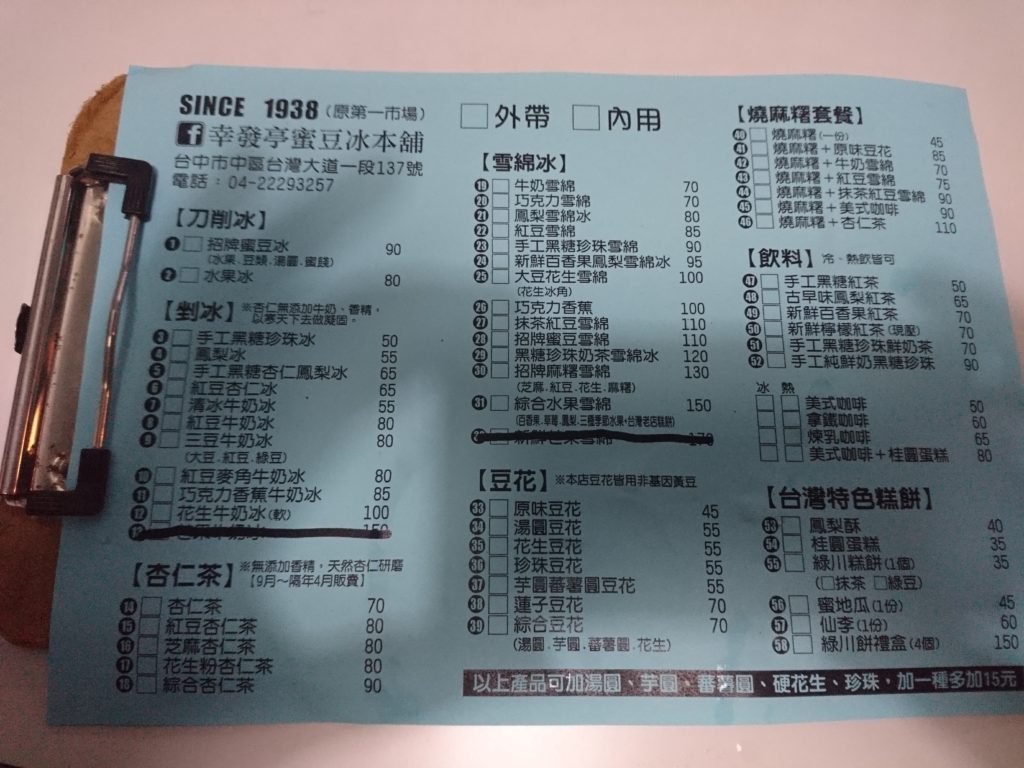 SINCE 1938(原第一市場)
幸發亭蜜豆冰本舖
台中市中區台灣大道一段137號
電話:04-22293257
【刀削冰】
1 招牌蜜豆冰 90
(水果.豆類.湯圓.蜜餞)
2 水果冰 80
【剉冰】※杏仁無添加牛奶、香精,
以寒天下去做凝固。
3 手工黑糖珍珠冰 50
4 鳳梨冰 55
5 手工黑糖杏仁鳳梨冰 65
6 紅豆杏仁冰 65
7 清冰牛奶冰 55
8 紅豆牛奶冰 80
9 三豆牛奶冰 80
(大豆.紅豆.綠豆)
10 紅豆麥角牛奶冰 80
11 巧克力香蕉牛奶冰 85
12 花生牛奶冰(軟) 100
150
【杏仁茶】※無添加香精,天然杏仁研磨
【9月~隔年4月販賣】
14 杏仁茶 70
15 紅豆杏仁茶 80
16 芝麻杏仁茶 80
17 花生粉杏仁茶 80
18 綜合杏仁茶 90
□外帶 □內用
【雪綿冰】
19 牛奶雪綿 70
20 巧克力雪綿 70
21 鳳梨雪綿冰 80
22 紅豆雪綿 85
23 手工黑糖珍珠雪綿 90
24 新鮮百香果鳳梨雪綿冰 95
25 大豆花生雪綿 100
(花生冰角)
26 巧克力香蕉 100
27 抹茶紅豆雪綿 110
28 招牌蜜豆雪綿 110
29 黑糖珍珠奶茶雪綿冰 120
30 招牌麻糬雪綿 130
(芝麻.紅豆.花生.麻糬)
31 綜合水果雪綿 150
(百香果.草莓.鳳梨.三種季節水果+台灣老店糕餅)
新鮮芒果雪綿 170
【豆花】※本店豆花皆用非基因黃豆
33 原味豆花 45
34 湯圓豆花 55
35 花生豆花 55
36 珍珠豆花 55
37 芋圓蕃薯圓豆花 55
38 蓮子豆花 70
39 綜合豆花 70
(湯圓.芋圓.蕃薯圓.花生)
以上產品可加湯圓、芋圓、蕃薯圓、硬花生、珍珠,加一種多加15元
【燒麻糬套餐】
40 燒麻糬(一份) 45
41 燒麻糬+原味豆花 85
42 燒麻糬+牛奶雪綿 80
43 燒麻糬+紅豆雪綿 75
44 燒麻糬+抹茶紅豆雪綿 90
45 燒麻糬+美式咖啡 90
46 燒麻糬+杏仁茶 110
【飲料】冷、熱飲皆可
47 手工黑糖紅茶 50
48 古早味鳳梨紅茶 65
49 新鮮百香果紅茶 70
50 新鮮檸檬紅茶(現壓) 70
51 手工黑糖珍珠鮮奶茶 70
52 手工純鮮奶黑糖珍珠 90
冰 熱
美式咖啡 50
拿鐵咖啡 60
煉乳咖啡 65
美式咖啡+桂圓蛋糕 80
【台灣特色糕餅】
53 鳳梨酥 40
54 桂圓蛋糕 35
55 綠川糕餅(1個) 35
(□抹茶 □綠豆)
56 蜜地瓜(1份) 45
57 仙李(1份) 60
58 綠川餅禮盒(4個) 150